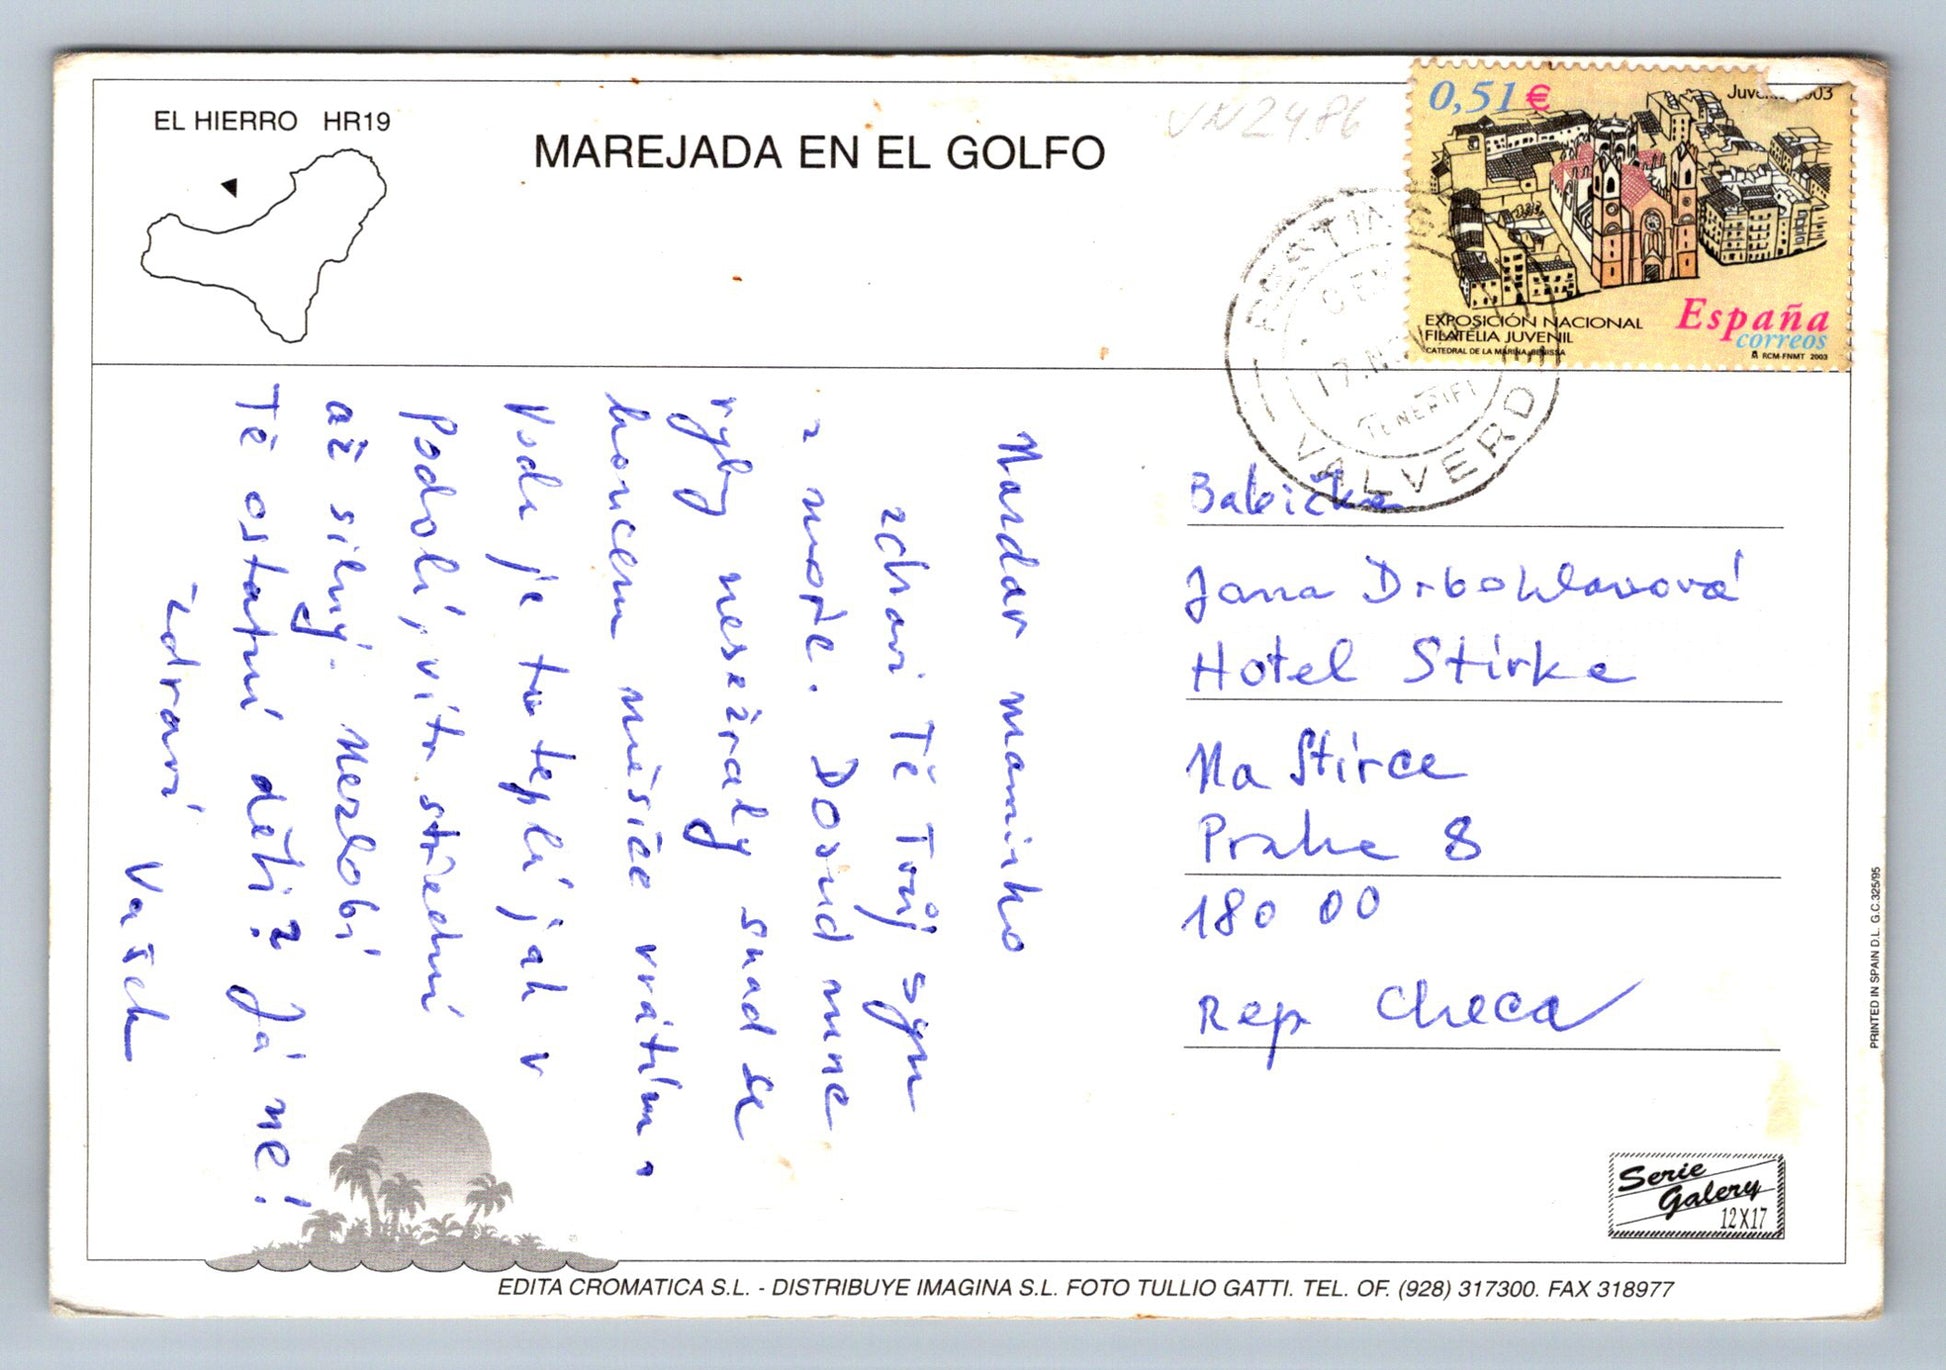 EL HIERRO HR19
MAREJADA EN EL GOLFO
VN2486
0,51 €
Juvenia 2003
EXPOSICIÓN NACIONAL
FILATELIA JUVENIL
CATEDRAL DE LA MARINA, BENISSA
España
correos
RCM-FNMT 2003
17.N
TENERIFE
VALVERDE
Nazdar maminko
zdraví Tě Tvůj syn
z moře. Dosud mne
ryby nesežraly snad se
koncem měsíce vrátím.
Voda je tu teplí jak v
Podolí, vítr střední
až silný. Nezlobí
Tě ostatní děti? Já ne!
Zdraví
Vašek
Babička
Jana Drbohlavová
Hotel Stírka
Na Stírce
Praha 8
180 00
Rep Checa
Serie
Galery
12X17
PRINTED IN SPAIN D.L. G.C.325/95
EDITA CROMATICA S.L. - DISTRIBUYE IMAGINA S.L. FOTO TULLIO GATTI. TEL. OF. (928) 317300. FAX 318977